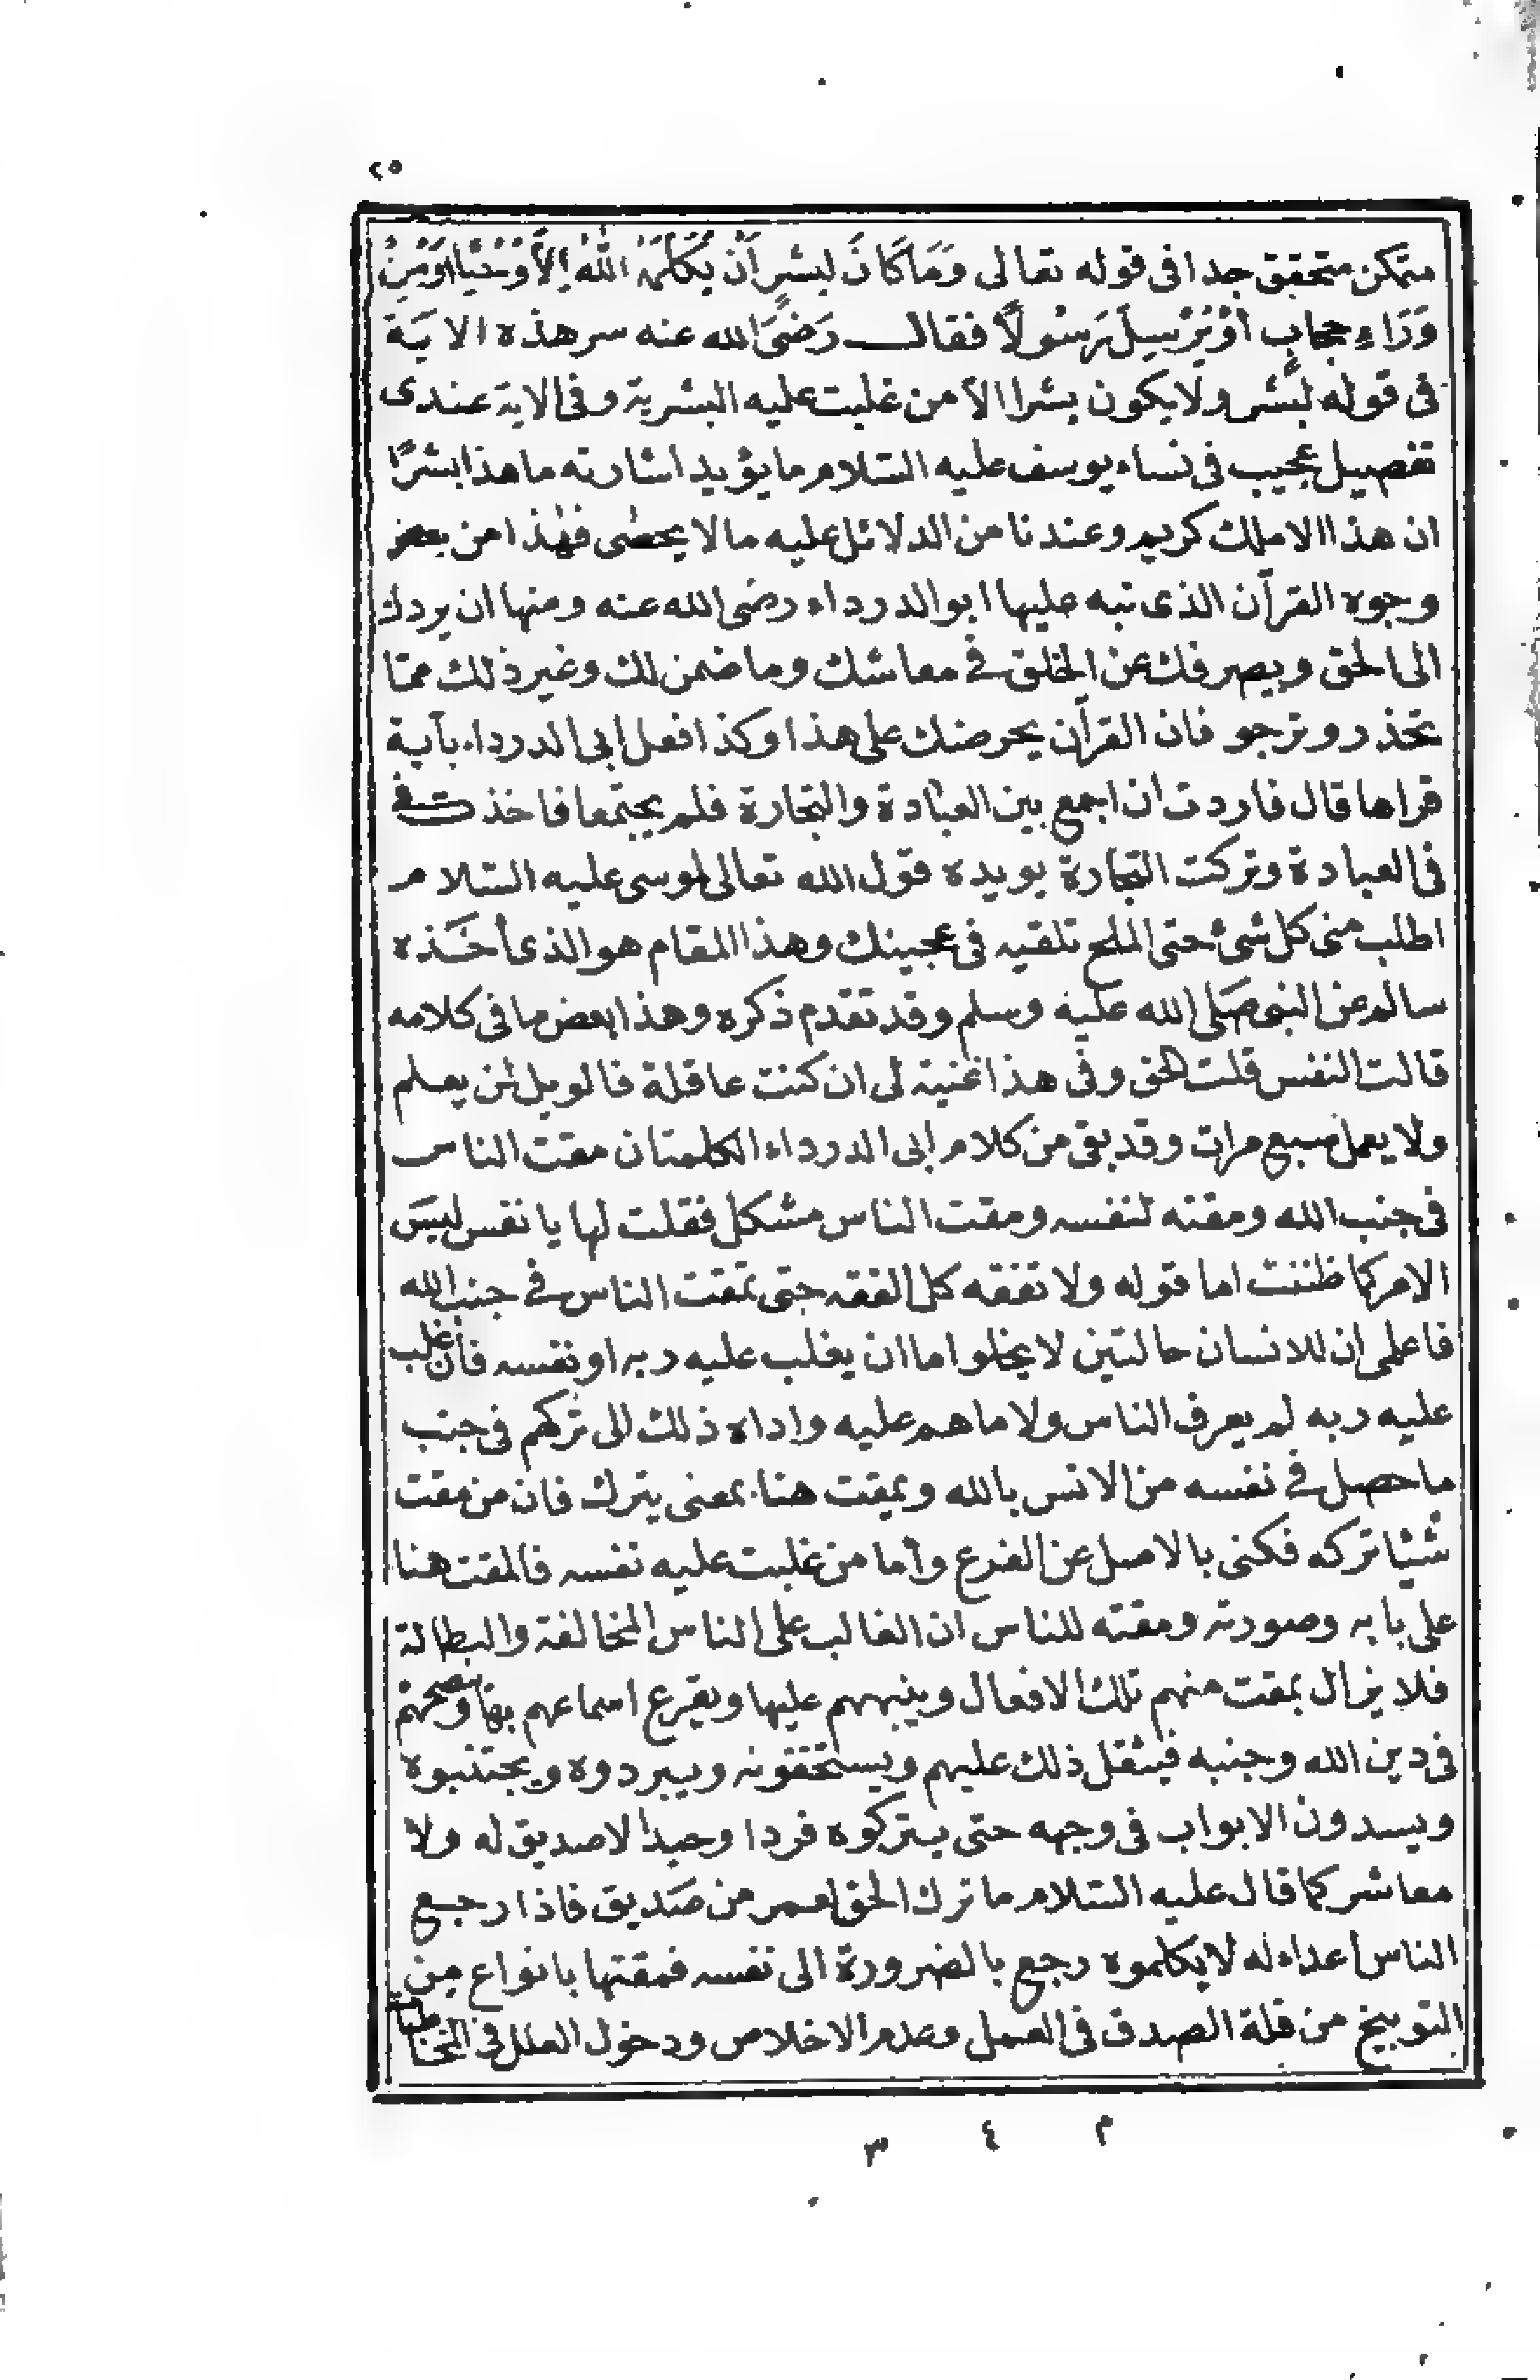 ٢٥
متمكن متحقق جدا فى قوله تعالى وَمَا كَانَ لبشرٍ أَنْ يُكَلِّمَهُ اللهُ إلاَّ وَحْيًا اَوْ مِنْ
وَرَاءِ حجابٍ أوْ يُرْسِلَ رَسُولاً فقال رَضىَ الله عنه سر هذه الايَة
فى قوله لبشر ولا يكون بشرا الا من غلبت عليه البشرية وفى الاية عندى
تفصيل عجيب فى نساء يوسف عليه السّلام ما يؤيد اشارته ما هذا بشرًا
ان هذا الا ملك كريم وعندنا من الدلائل عليه ما لا يحصى فهذا من بعض
وجوه القرآن الذى نبه عليها ابو الدرداء رضى الله عنه ومنها ان يردك
الى الحق ويصرفك عن الخلق فى معاشك وما ضمن لك وغير ذلك ممّا
تحذر وترجو فان القرآن يحرضك على هذا وكذا فعل ابى الدرداء بآية
قراها قال فاردت ان اجمع بين العبادة والتجارة فلم يجتمعا فاخذت فى
فى العبادة وتركت التجارة يويده قول الله تعالى لموسى عليه السّلام
اطلب منى كل شئ حتى الملح تلقيه فى عجينك وهذا المقام هو الذى أخَذه
سالم عن النبى صَلى الله عليه وسلم وقد تقدم ذكره وهذا بعض ما فى كلامه
قالت النفس قلت الحق وفى هذا غنية لى ان كنت عاقلة فالويل لمن يعلم
ولا يعمل سبع مرات وقد بقى من كلام ابى الدرداء الكلمتان مقت الناس
فى جنب الله ومقته لنفسه ومقت الناس مشكل فقلت لها يا نفس ليسَ
الامر كما ظننت اما قوله ولا تفقه كل الفقه حتى تمقت الناس فى جنب الله
فاعلمى ان للانسان حالتين لا يخلوا اما ان يغلب عليه ربه او نفسه فان غلب
عليه ربه لم يعرف الناس ولا ما هم عليه واداه ذلك الى تركهم فى جنب
ما حصل فى نفسه من الانس بالله ويمقت هنا بمعنى يترك فان من مقت
شيئا تركه فكنى بالاصل عن الفرع وأما من غلبت عليه نفسه فالمقت هنا
على بابه وصورته ومقته للناس ان الغالب على الناس المخالفة والبطالة
فلا يزال يمقت منهم تلك الافعال وينبههم عليها ويقرع اسماعهم بها وينصحهم
فى دين الله وجنبه فيثقل ذلك عليهم ويستخقونه ويبردوه ويجتنبوه
ويسدون الابواب فى وجهه حتى يتركوه فردا وحيدا لا صديق له ولا
معاشر كما قال عليه السّلام ما ترك الحق لعمر من صَديق فاذا رجع
الناس أعداء له لا يكلموه رجع بالضرورة الى نفسه فمقتها بانواع من
التوبيخ من قلة الصدق فى العمل وعدم الاخلاص ودخول العلل فى
م ٤ ٣